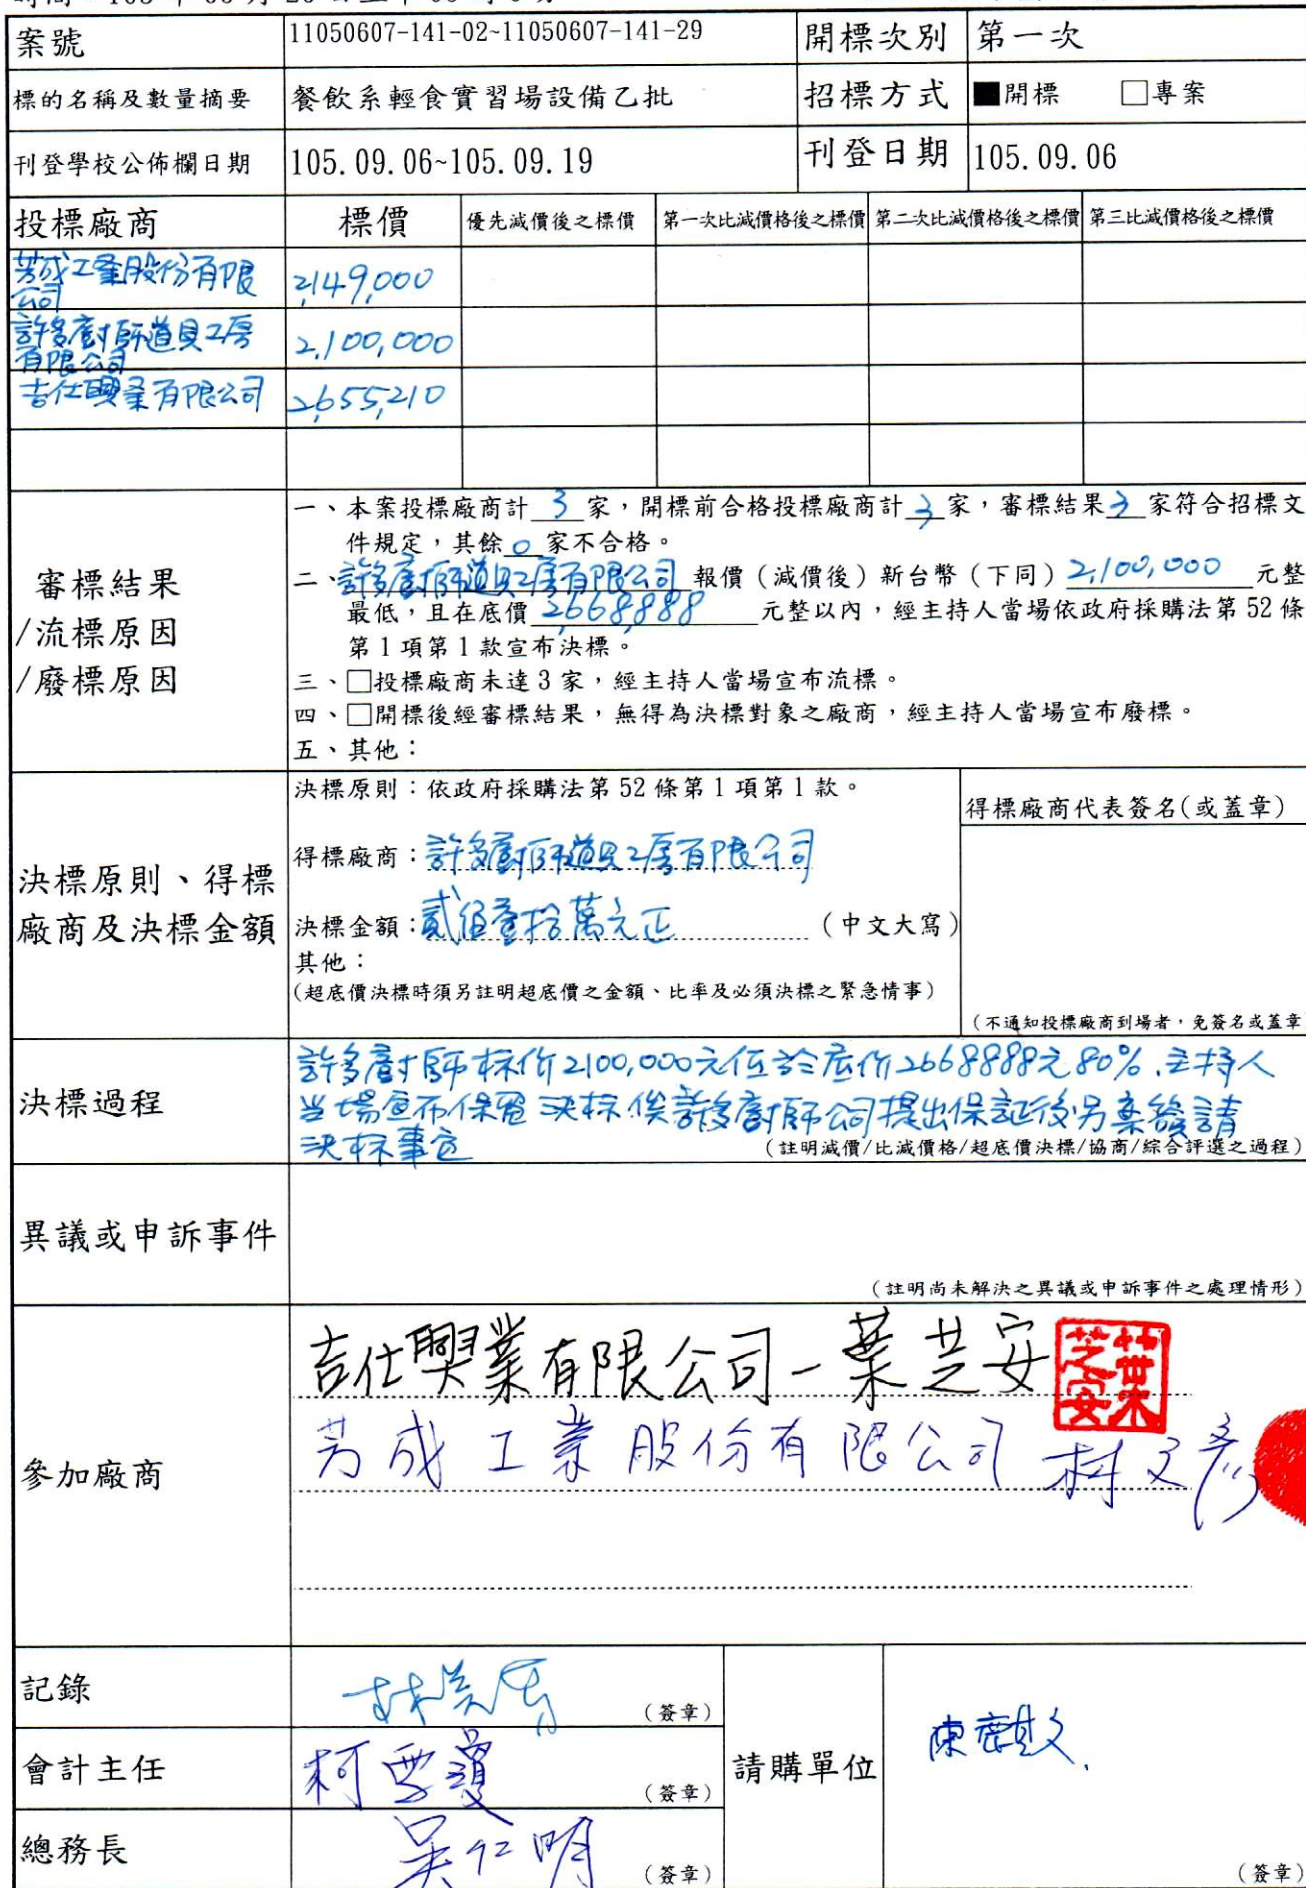 案號 11050607-141-02~11050607-141-29 開標次別 第一次
標的名稱及數量摘要 餐飲系輕食實習場設備乙批 招標方式 ■開標 □專案
刊登學校公佈欄日期 105.09.06~105.09.19 刊登日期 105.09.06
投標廠商 標價 優先減價後之標價 第一次比減價格後之標價 第二次比減價格後之標價 第三比減價格後之標價
芳成工業股份有限公司 2,149,000
許多廚師道具工房有限公司 2,100,000
吉仕興業有限公司 2,655,210
審標結果
/流標原因
/廢標原因
一、本案投標廠商計 3 家，開標前合格投標廠商計 3 家，審標結果 3 家符合招標文
件規定，其餘 0 家不合格。
二、許多廚師道具工房有限公司 報價（減價後）新台幣（下同）2,100,000 元整
最低，且在底價 2,668,888 元整以內，經主持人當場依政府採購法第 52 條
第 1 項第 1 款宣布決標。
三、□投標廠商未達 3 家，經主持人當場宣布流標。
四、□開標後經審標結果，無得為決標對象之廠商，經主持人當場宣布廢標。
五、其他：
決標原則、得標
廠商及決標金額
決標原則：依政府採購法第 52 條第 1 項第 1 款。
得標廠商：許多廚師道具工房有限公司
決標金額：貳佰壹拾萬元正 （中文大寫）
其他：
（超底價決標時須另註明超底價之金額、比率及必須決標之緊急情事）
得標廠商代表簽名(或蓋章)
（不通知投標廠商到場者，免簽名或蓋章
決標過程
許多廚師标价2100,000元低於底价2668888元80%.主持人
当場宣布保留決标俟許多廚師公司提出保証後另案簽請
決标事宜
（註明減價/比減價格/超底價決標/協商/綜合評選之過程）
異議或申訴事件
（註明尚未解決之異議或申訴事件之處理情形）
參加廠商
吉仕興業有限公司-葉芝安 葉芝安
芳成工業股份有限公司 柯文彥
記錄 （簽章）
會計主任 柯雪瓊 （簽章）
總務長 吳仁明 （簽章）
請購單位 （簽章）